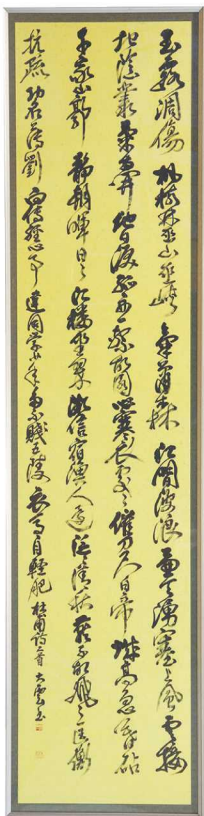 玉露凋傷楓樹林巫山巫峽氣蕭森江間波浪兼天湧塞上風雲接
地陰叢菊兩開他日淚孤舟一繫故園心寒衣處處催刀尺白帝城高急暮砧
千家山郭靜朝暉日日江樓坐翠微信宿漁人還泛泛清秋燕子故飛飛匡衡
抗疏功名薄劉向傳經心事違同學少年多不賤五陵衣馬自輕肥杜甫詩二首大雲書